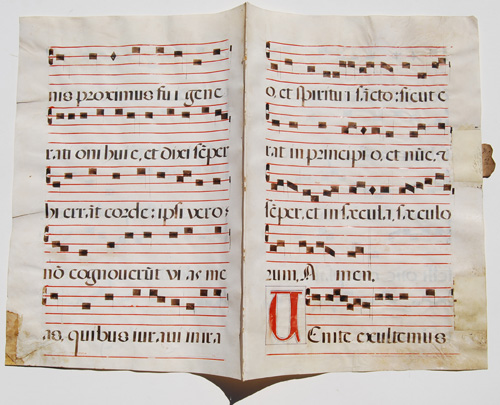 nis proximus fui gene
rati oni huic, et dixi sēper
hi errāt corde: ipsi vero
nō cognoverūt vias me
as, quibus iuravi in ira
o, et spiritui sācto: sicut e
rat in principio, et nūc, et
sēper, et in sæcula, sæculo
rum, A men.
UEnite exultemus